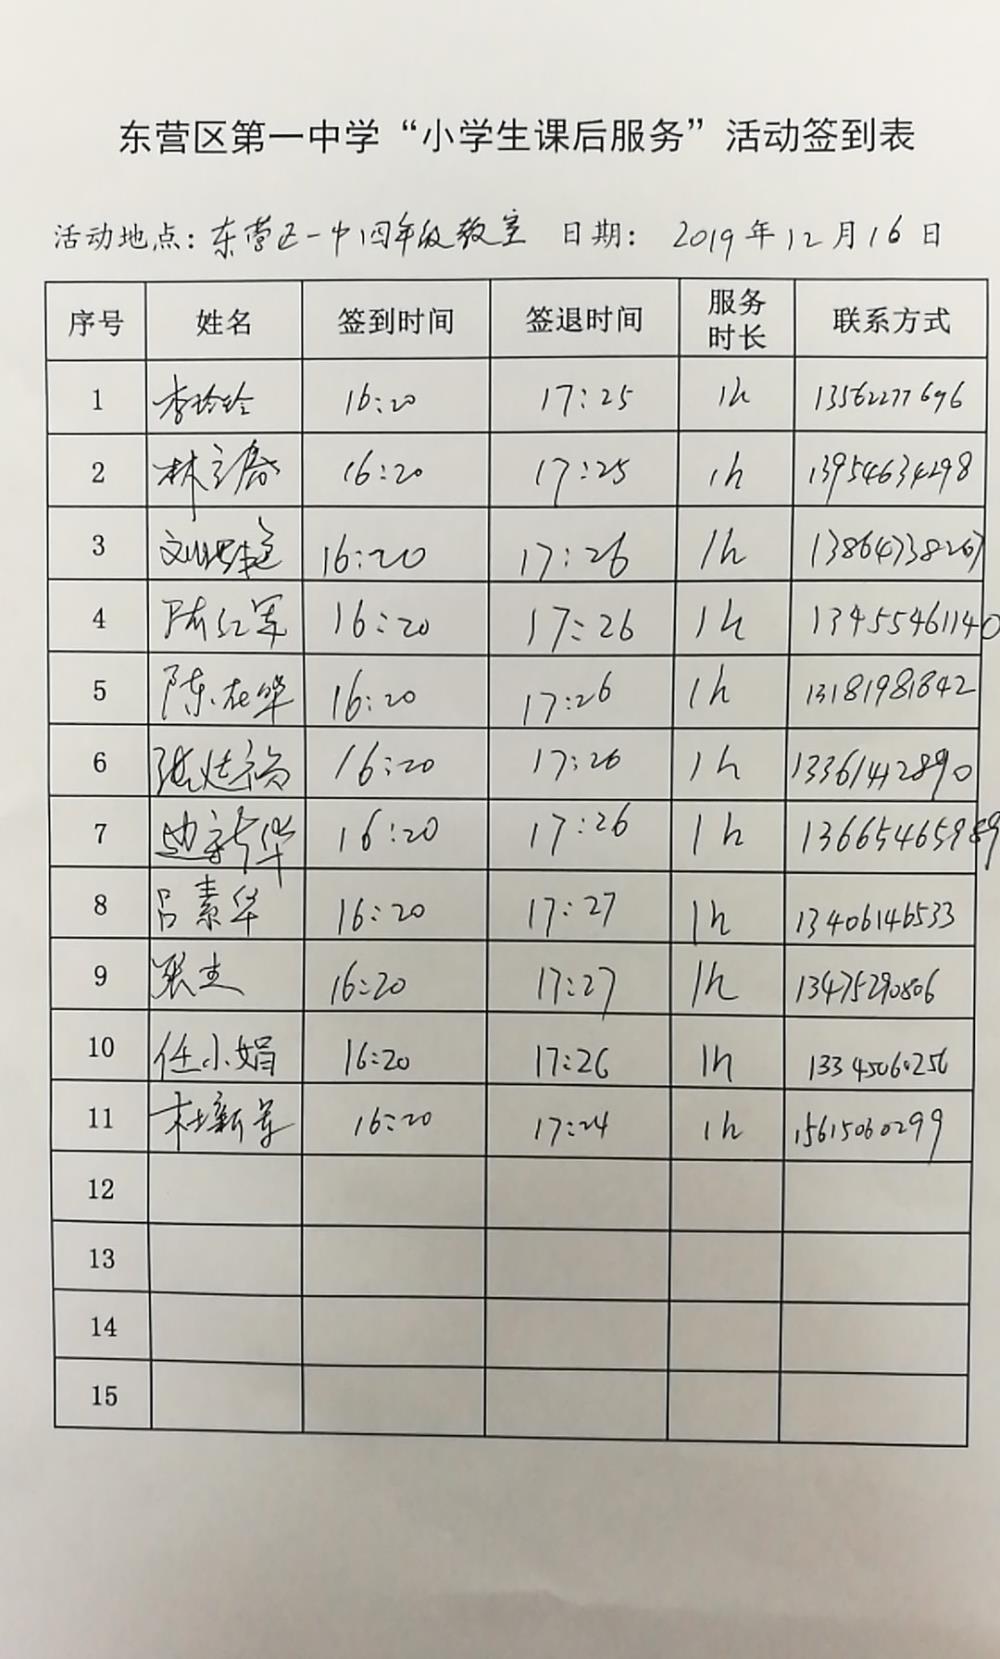 东营区第一中学“小学生课后服务”活动签到表
活动地点：东营区一中四年级教室 日期： 2019年12月16日
序号 姓名 签到时间 签退时间 服务时长 联系方式
1 李玲玲 16:20 17:25 1h 13562277696
2 16:20 17:25 1h 13954634298
3 16:20 17:26 1h 13864738267
4 陈红军 16:20 17:26 1h 13455461140
5 陈在华 16:20 17:26 1h 13181981842
6 16:20 17:26 1h 13361442890
7 16:20 17:26 1h 13665465989
8 吕素华 16:20 17:27 1h 13406146533
9 16:20 17:27 1h 13475290806
10 任小娟 16:20 17:26 1h 13345060256
11 杜新军 16:20 17:24 1h 15615060299
12
13
14
15